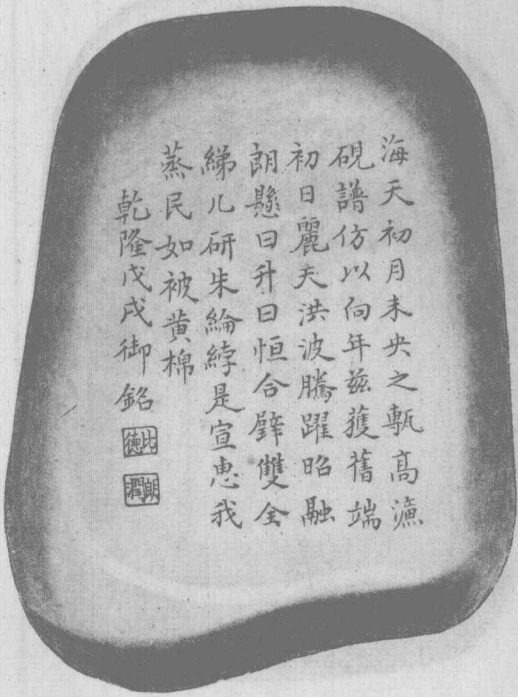 海天初月未央之甎高濂
硯譜仿以向年兹獲舊端
初日麗天洪波騰躍昭融
朗懸曰升曰恒合璧雙全
綈几研朱綸綍是宣惠我
蒸民如被黄棉
乾隆戊戌御銘
比德
朗潤